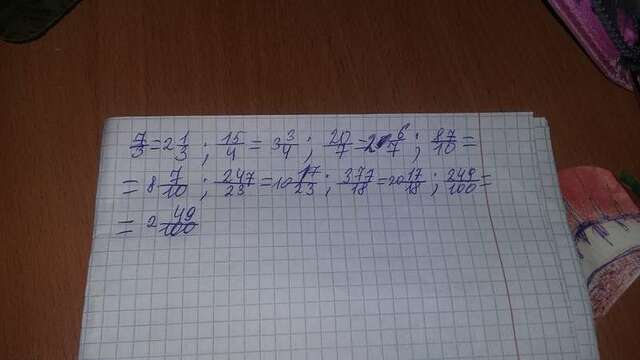 7/3 = 2 1/3 ; 15/4 = 3 3/4 ; 20/7 = 2 6/7 ; 87/10 =
= 8 7/10 ; 247/23 = 10 17/23 ; 377/18 = 20 17/18 ; 249/100 =
= 2 49/100